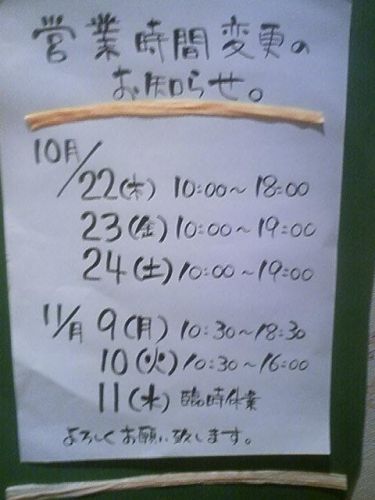 営業時間変更の
お知らせ。
10月/22(木) 10:00~18:00
23(金) 10:00~19:00
24(土) 10:00~19:00
11/月 9(月) 10:30~18:30
10(火) 10:30~16:00
11(水) 臨時休業
よろしくお願い致します。